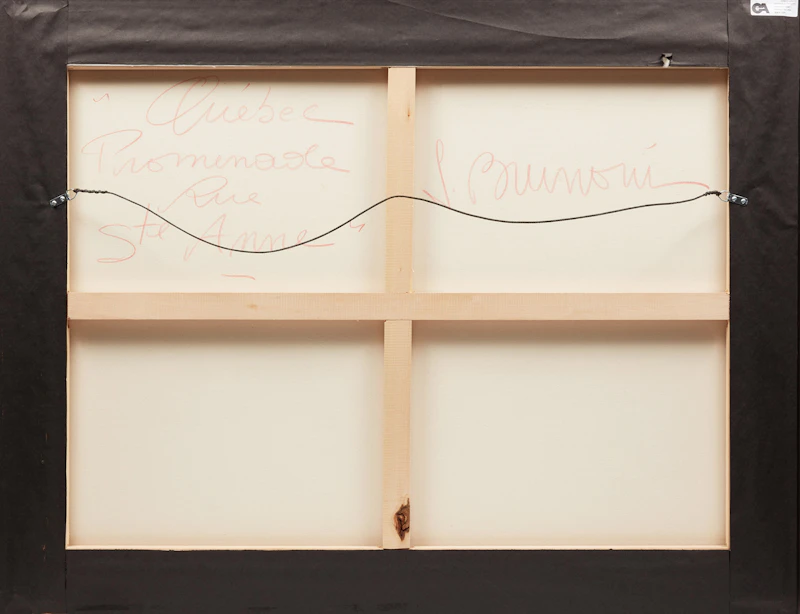 "Québec
Promenade
Rue
Ste Anne"
S. Brunoni
CA